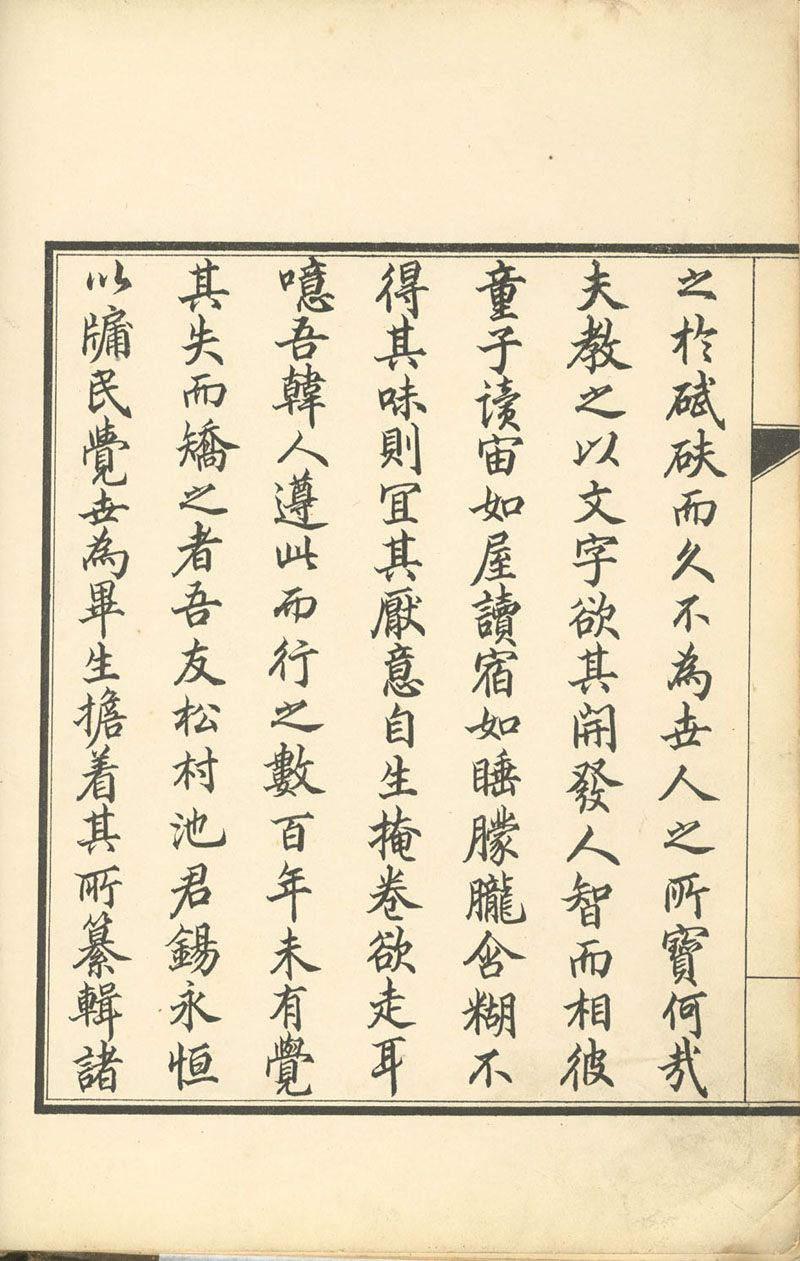 之於碔砆而久不為世人之所寶何哉
夫教之以文字欲其開發人智而相彼
童子读宙如屋讀宿如睡朦朧含糊不
得其味則冝其厭意自生掩卷欲走耳
噫吾韓人遵此而行之數百年未有覺
其失而矯之者吾友松村池君錫永恒
以牖民覺世為畢生擔着其所纂輯諸